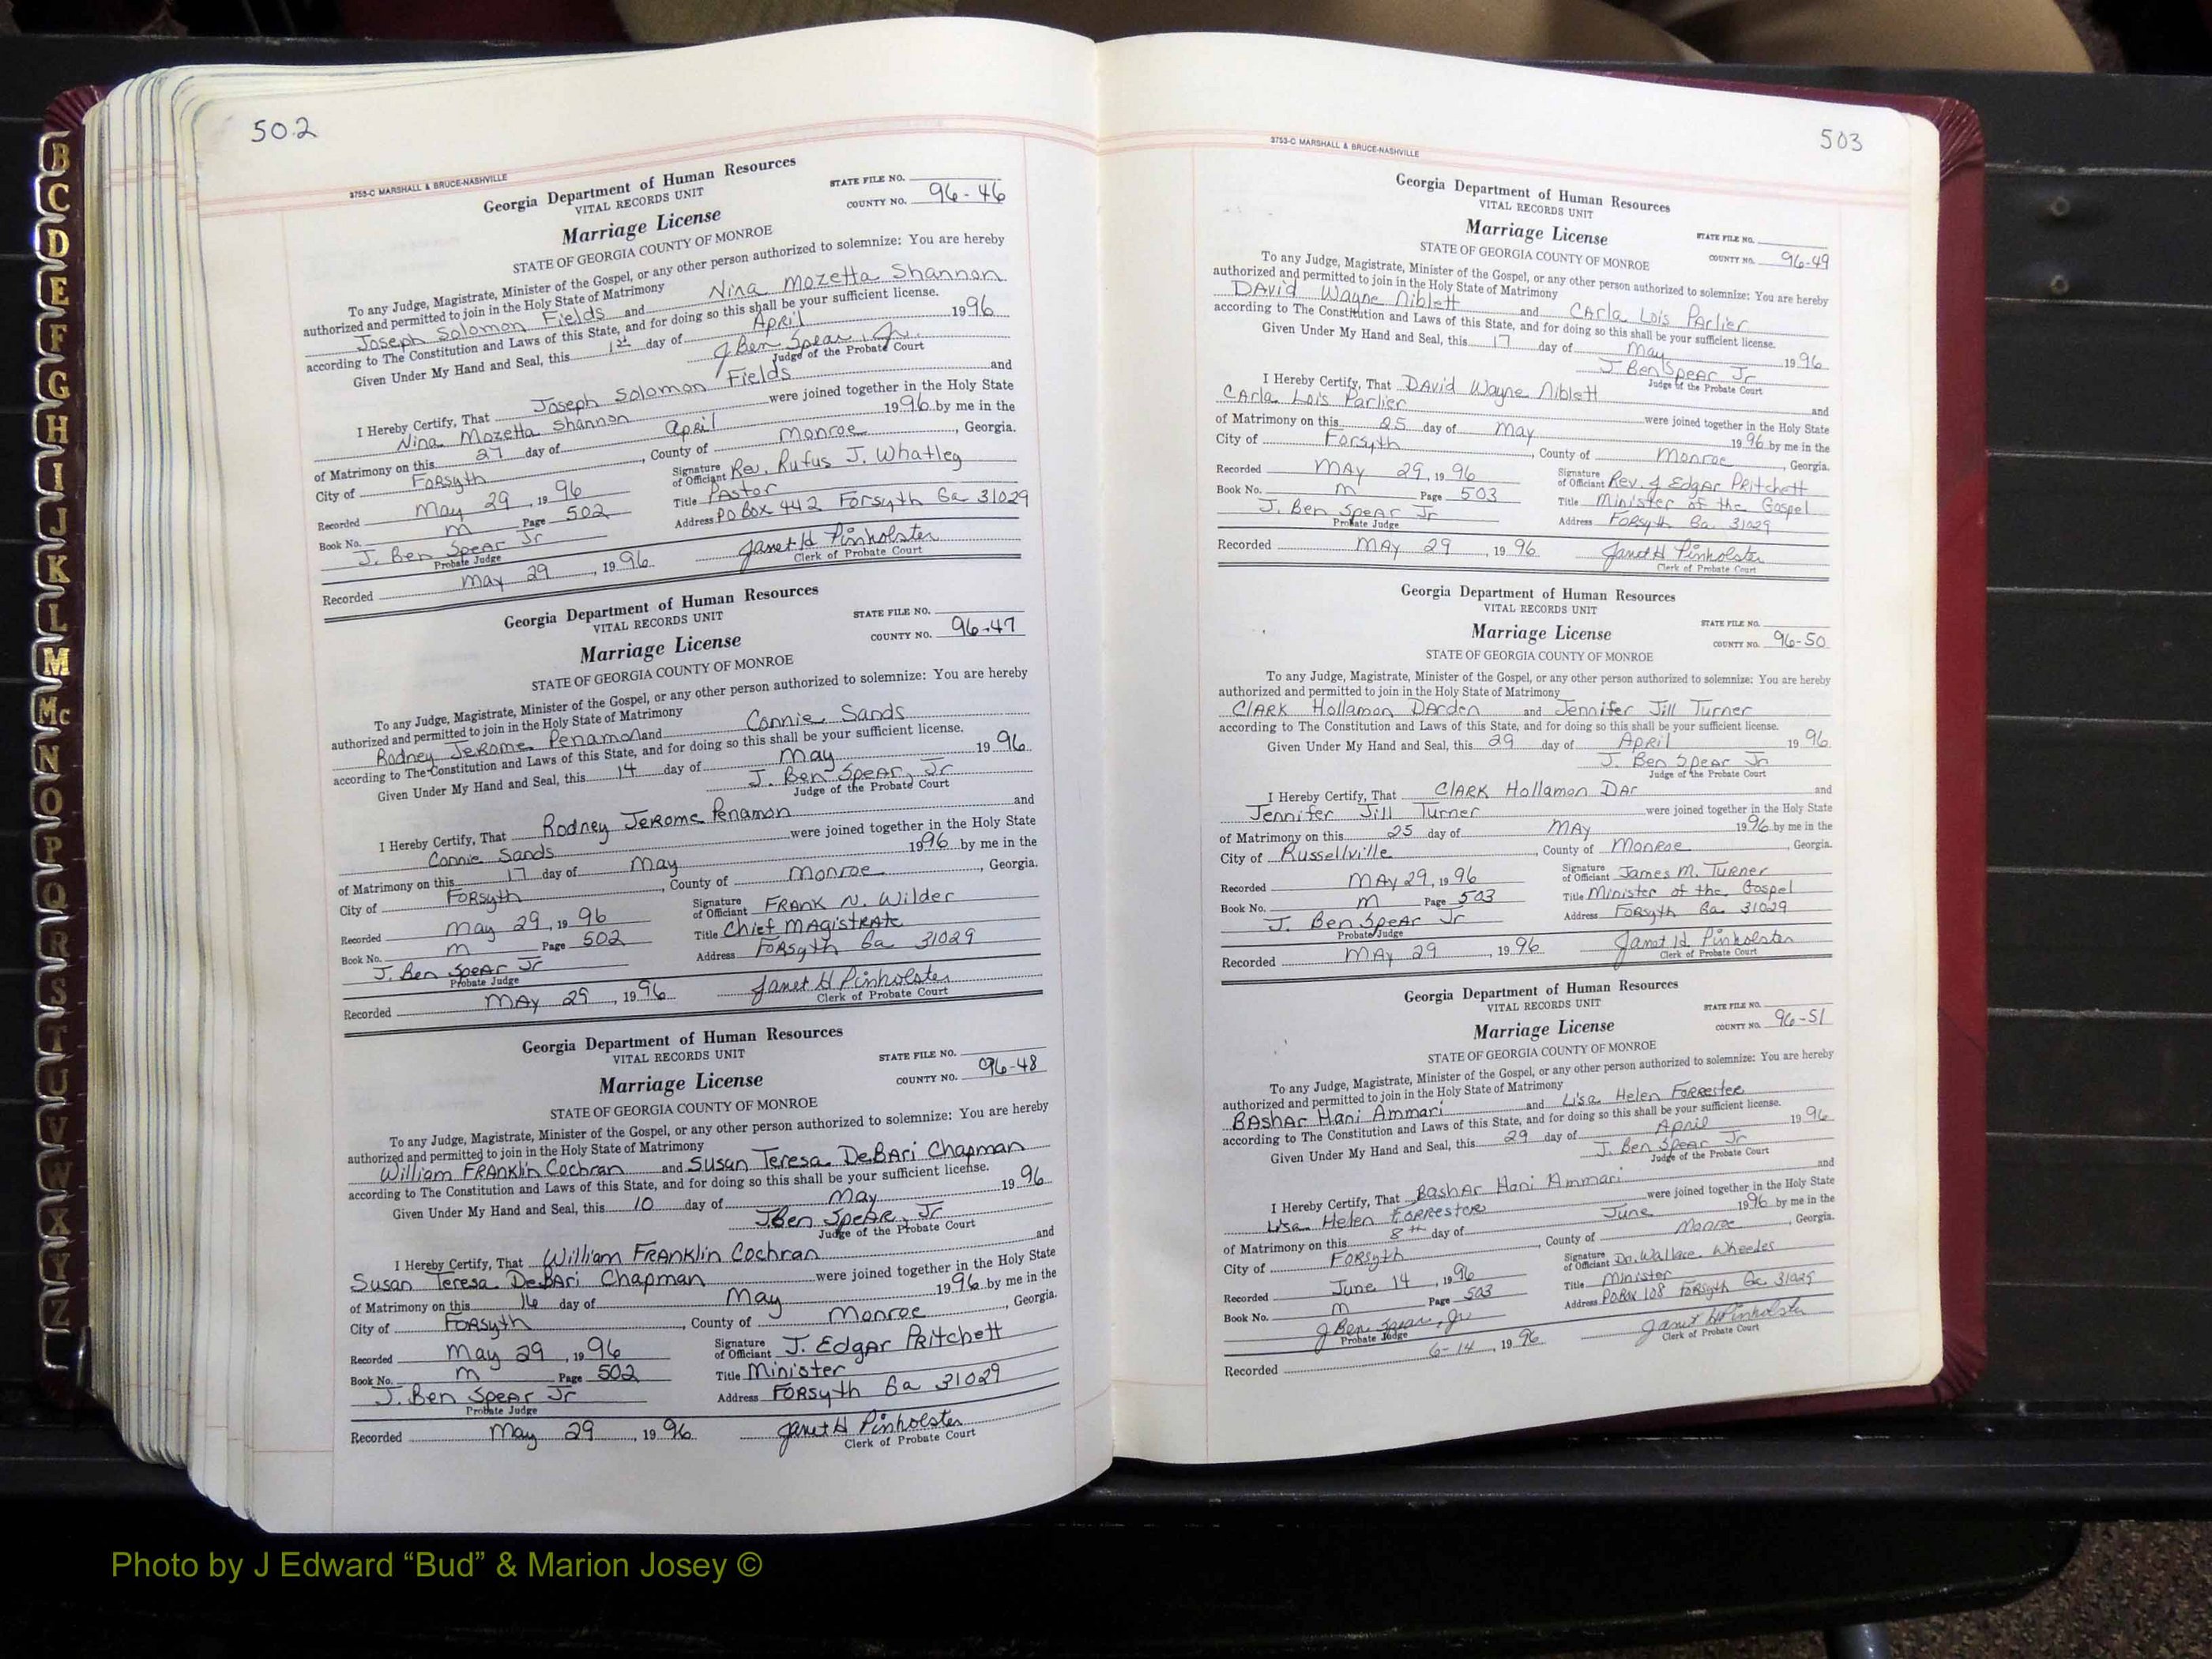 B
C
D
E
F
G
H
I
J
K
L
M
Mc
N
O
P
Q
R
S
T
U
V
W
X
Y
Z
502
3753-C MARSHALL & BRUCE-NASHVILLE
Georgia Department of Human Resources
VITAL RECORDS UNIT
STATE FILE NO.
Marriage License
COUNTY NO. 96-46
STATE OF GEORGIA COUNTY OF MONROE
To any Judge, Magistrate, Minister of the Gospel, or any other person authorized to solemnize: You are hereby
authorized and permitted to join in the Holy State of Matrimony
Joseph Solomon Fields and Nina Mozetta Shannon
according to The Constitution and Laws of this State, and for doing so this shall be your sufficient license.
Given Under My Hand and Seal, this 1st day of April 1996
J Ben Spear, Jr.
Judge of the Probate Court
I Hereby Certify, That Joseph Solomon Fields and
Nina Mozetta Shannon were joined together in the Holy State
of Matrimony on this 27 day of April 1996 by me in the
City of Forsyth, County of Monroe, Georgia.
Recorded May 29, 1996 Signature of Officiant Rev. Rufus J. Whatley
Book No. M Page 502 Title Pastor
J. Ben Spear Jr Address PO Box 442 Forsyth Ga 31029
Probate Judge
Recorded May 29, 1996 Janet H Pinholster
Clerk of Probate Court
Georgia Department of Human Resources
VITAL RECORDS UNIT
STATE FILE NO.
Marriage License
COUNTY NO. 96-47
STATE OF GEORGIA COUNTY OF MONROE
To any Judge, Magistrate, Minister of the Gospel, or any other person authorized to solemnize: You are hereby
authorized and permitted to join in the Holy State of Matrimony
Rodney Jerome Penamon and Connie Sands
according to The Constitution and Laws of this State, and for doing so this shall be your sufficient license.
Given Under My Hand and Seal, this 14 day of May 1996
J. Ben Spear, Jr
Judge of the Probate Court
I Hereby Certify, That Rodney Jerome Penamon and
Connie Sands were joined together in the Holy State
of Matrimony on this 17 day of May 1996 by me in the
City of Forsyth, County of Monroe, Georgia.
Recorded May 29, 1996 Signature of Officiant Frank N. Wilder
Book No. M Page 502 Title Chief Magistrate
J. Ben Spear Jr Address Forsyth Ga 31029
Probate Judge
Recorded May 29, 1996 Janet H Pinholster
Clerk of Probate Court
Georgia Department of Human Resources
VITAL RECORDS UNIT
STATE FILE NO.
Marriage License
COUNTY NO. 96-48
STATE OF GEORGIA COUNTY OF MONROE
To any Judge, Magistrate, Minister of the Gospel, or any other person authorized to solemnize: You are hereby
authorized and permitted to join in the Holy State of Matrimony
William Franklin Cochran and Susan Teresa DeBari Chapman
according to The Constitution and Laws of this State, and for doing so this shall be your sufficient license.
Given Under My Hand and Seal, this 10 day of May 1996
J Ben Spear, Jr
Judge of the Probate Court
I Hereby Certify, That William Franklin Cochran and
Susan Teresa DeBari Chapman were joined together in the Holy State
of Matrimony on this 16 day of May 1996 by me in the
City of Forsyth, County of Monroe, Georgia.
Recorded May 29, 1996 Signature of Officiant J. Edgar Pritchett
Book No. M Page 502 Title Minister
J. Ben Spear Jr Address Forsyth Ga 31029
Probate Judge
Recorded May 29, 1996 Janet H Pinholster
Clerk of Probate Court
503
3753-C MARSHALL & BRUCE-NASHVILLE
Georgia Department of Human Resources
VITAL RECORDS UNIT
Marriage License STATE FILE NO.
STATE OF GEORGIA COUNTY OF MONROE COUNTY NO. 96-49
To any Judge, Magistrate, Minister of the Gospel, or any other person authorized to solemnize: You are hereby
authorized and permitted to join in the Holy State of Matrimony
David Wayne Niblett and Carla Lois Parlier
according to The Constitution and Laws of this State, and for doing so this shall be your sufficient license.
Given Under My Hand and Seal, this 17 day of May 1996
J. Ben Spear Jr
Judge of the Probate Court
I Hereby Certify, That David Wayne Niblett and
Carla Lois Parlier were joined together in the Holy State
of Matrimony on this 25 day of May 1996 by me in the
City of Forsyth, County of Monroe, Georgia.
Recorded May 29, 1996 Signature of Officiant Rev. J Edgar Pritchett
Book No. M Page 503 Title Minister of the Gospel
J. Ben Spear Jr Address Forsyth Ga 31029
Probate Judge
Recorded May 29, 1996 Janet H Pinholster
Clerk of Probate Court
Georgia Department of Human Resources
VITAL RECORDS UNIT
STATE FILE NO.
Marriage License
COUNTY NO. 96-50
STATE OF GEORGIA COUNTY OF MONROE
To any Judge, Magistrate, Minister of the Gospel, or any other person authorized to solemnize: You are hereby
authorized and permitted to join in the Holy State of Matrimony
Clark Hollamon Darden and Jennifer Jill Turner
according to The Constitution and Laws of this State, and for doing so this shall be your sufficient license.
Given Under My Hand and Seal, this 29 day of April 1996
J. Ben Spear Jr
Judge of the Probate Court
I Hereby Certify, That Clark Hollamon Dar and
Jennifer Jill Turner were joined together in the Holy State
of Matrimony on this 25 day of May 1996 by me in the
City of Russellville, County of Monroe, Georgia.
Recorded May 29, 1996 Signature of Officiant James M. Turner
Book No. M Page 503 Title Minister of the Gospel
J. Ben Spear Jr Address Forsyth Ga. 31029
Probate Judge
Recorded May 29, 1996 Janet H. Pinholster
Clerk of Probate Court
Georgia Department of Human Resources
VITAL RECORDS UNIT
STATE FILE NO.
Marriage License
COUNTY NO. 96-51
STATE OF GEORGIA COUNTY OF MONROE
To any Judge, Magistrate, Minister of the Gospel, or any other person authorized to solemnize: You are hereby
authorized and permitted to join in the Holy State of Matrimony
Bashar Hani Ammari and Lisa Helen Forrester
according to The Constitution and Laws of this State, and for doing so this shall be your sufficient license.
Given Under My Hand and Seal, this 29 day of April 1996
J. Ben Spear Jr
Judge of the Probate Court
I Hereby Certify, That Bashar Hani Ammari and
Lisa Helen Forrester were joined together in the Holy State
of Matrimony on this 8th day of June 1996 by me in the
City of Forsyth, County of Monroe, Georgia.
Recorded June 14, 1996 Signature of Officiant Dr. Wallace Wheeles
Book No. M Page 503 Title Minister
J Ben Spear, Jr Address PO Box 108 Forsyth Ga 31029
Probate Judge
Recorded 6-14, 1996 Janet H Pinholster
Clerk of Probate Court
Photo by J Edward “Bud” & Marion Josey ©